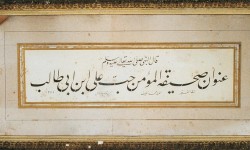 قال النبی صلی الله علیه وسلم
عنوان صحیفة المؤمن حب علی ابن ابی طالب